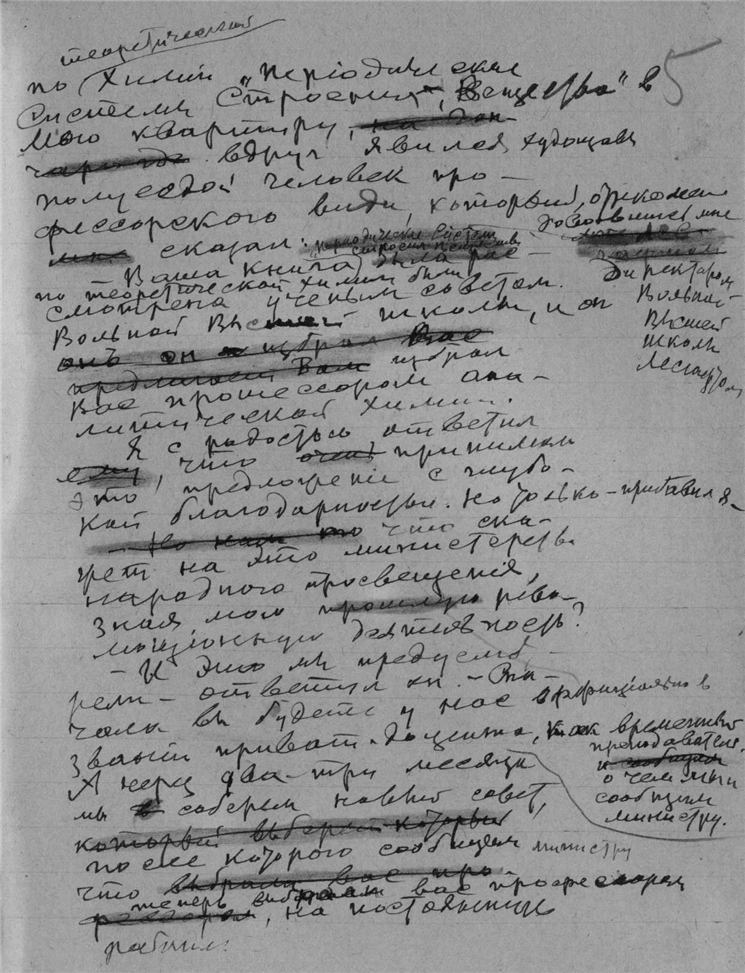 теоретической
по Химии „Періодическая
Система Строения Вещества" в 5
мою квартиру,
вдруг явился худощав
полуседой человек про-
фессорского вида, который, отрекоменд
довавшись мне
сказал:
Директором
Вольной
Высшей
школы
Лесгафтом
„періодическія системы
строения вещества
Ваша книга была рас-
по теоретической химии были
смотрена ученым советом.
Вольной Высшей школы, и он
он избрал Вас
предлагает Вам избрал
Вас профессором ана-
литической химии.
Я с радостью ответил
ему, что очень принимаю
это предложение с глубо-
кой благодарностью. Но только - прибавил я -
что ска-
жет на это министерство
народного просвещения,
зная мою прошлую рево-
люціонную деятельность?
- И это мы предусмот-
рели - ответил он. - Сна-
чала вы будете у нас оффиціально в
званіи приват-доцента, как временный
преподаватель,
и сообщим
о чем мы и
сообщим
министру.
А через два-три месяца
мы соберем новый совет,
который выберет который
после которого сообщим министру
что выбрали вас про-
теперь выбрали вас профессором
фессором, на постоянную